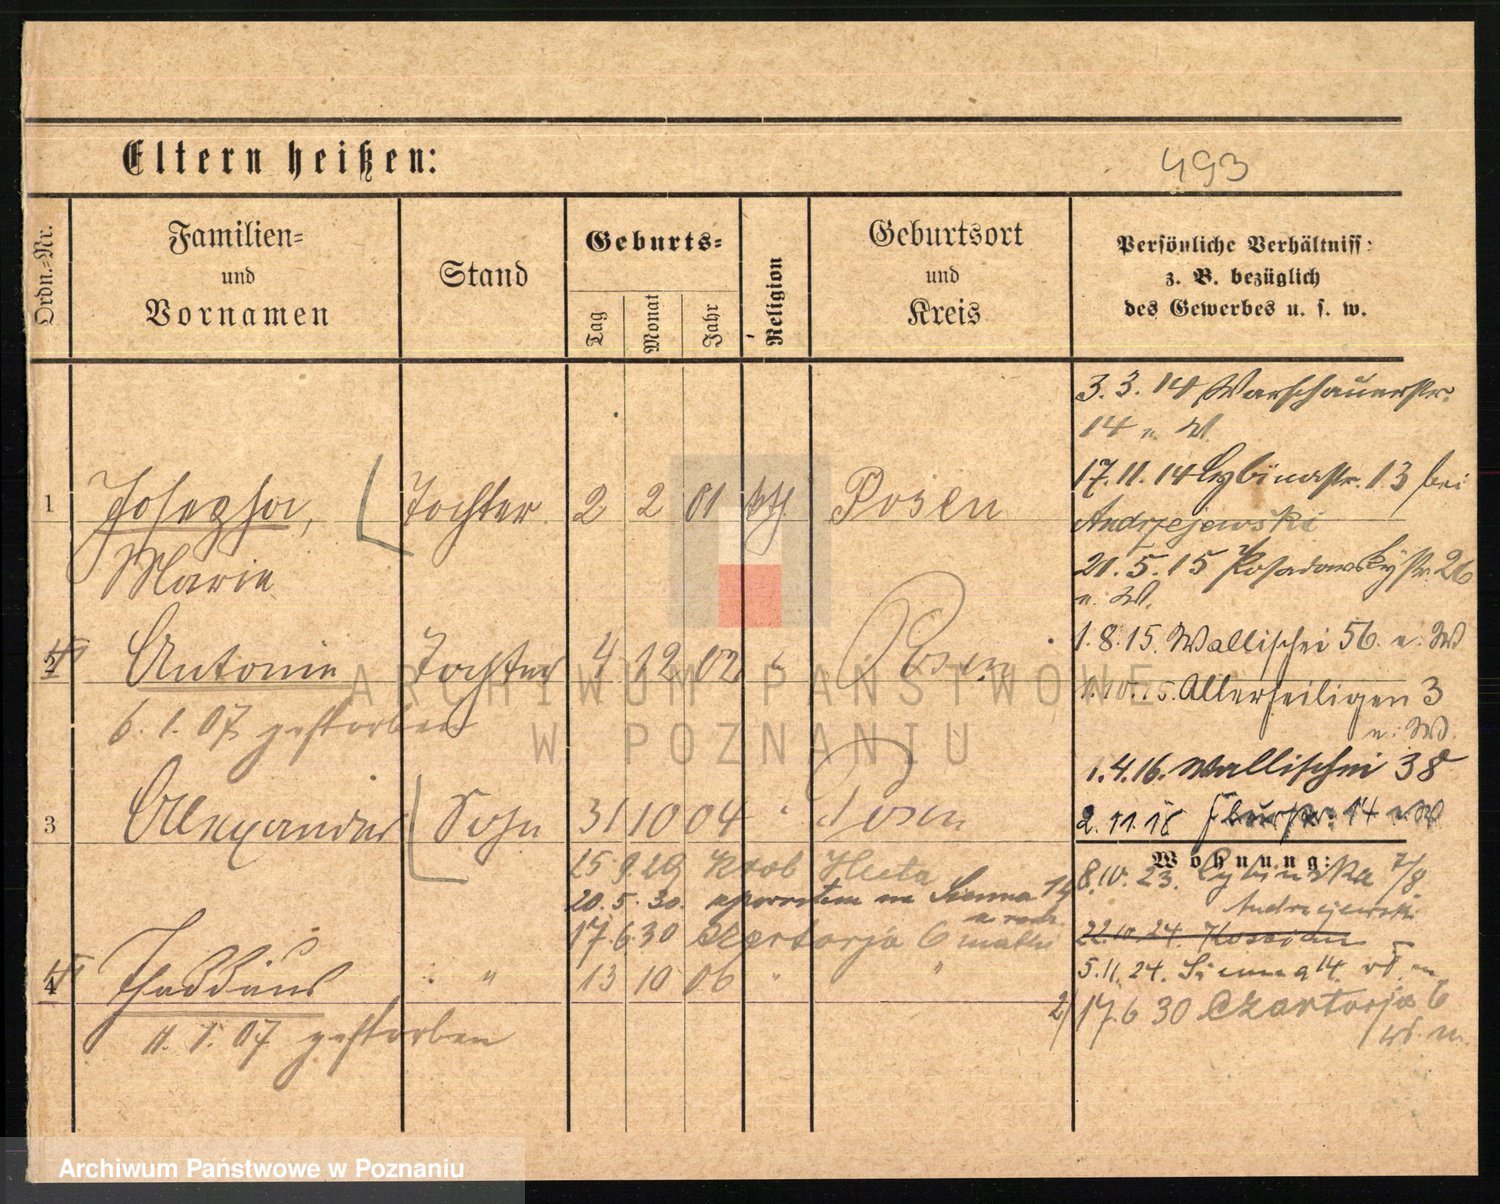 Eltern heißen:
493
Ordn.-Nr.
Familien-
und
Vornamen
Stand
Geburts-
Tag
Monat
Jahr
Religion
Geburtsort
und
Kreis
Persönliche Verhältniss
z. B. bezüglich
des Gewerbes u. s. w.
3.3.14 Warschauerstr.
14 u. W.
17.11.14 Cybinastr. 13 bei
Andrzejewski
21.5.15 Posadowskystr. 26
u. W.
1.8.15. Wallischei 56. u. W
1.10.15. Allerheiligen 3
u. W.
1.4.16. Wallischei 38
2.11.18 14 u. W
1 Josepha, Tochter 2 2 01 kth. Posen
Marie
2 Antonie Tochter 4 12 02 " Posen
6.1.07 gestorben
3 Alexander Sohn 31 10 04 " Posen
25.9.29 Huta
20.5.30. na Sienna 14
17.6.30 Czartorja 6
matki
4 Thaddäus " 13 10 06 " "
11.1.07 gestorben
Wohnung:
8.10.23. Cybinska 7/8
Andrzejewski
22.10.24.
5.11.24. Sienna 14.
2) 17.6 30 Czartorja 6
ARCHIWUM PAŃSTWOWE
W POZNANIU
Archiwum Państwowe w Poznaniu